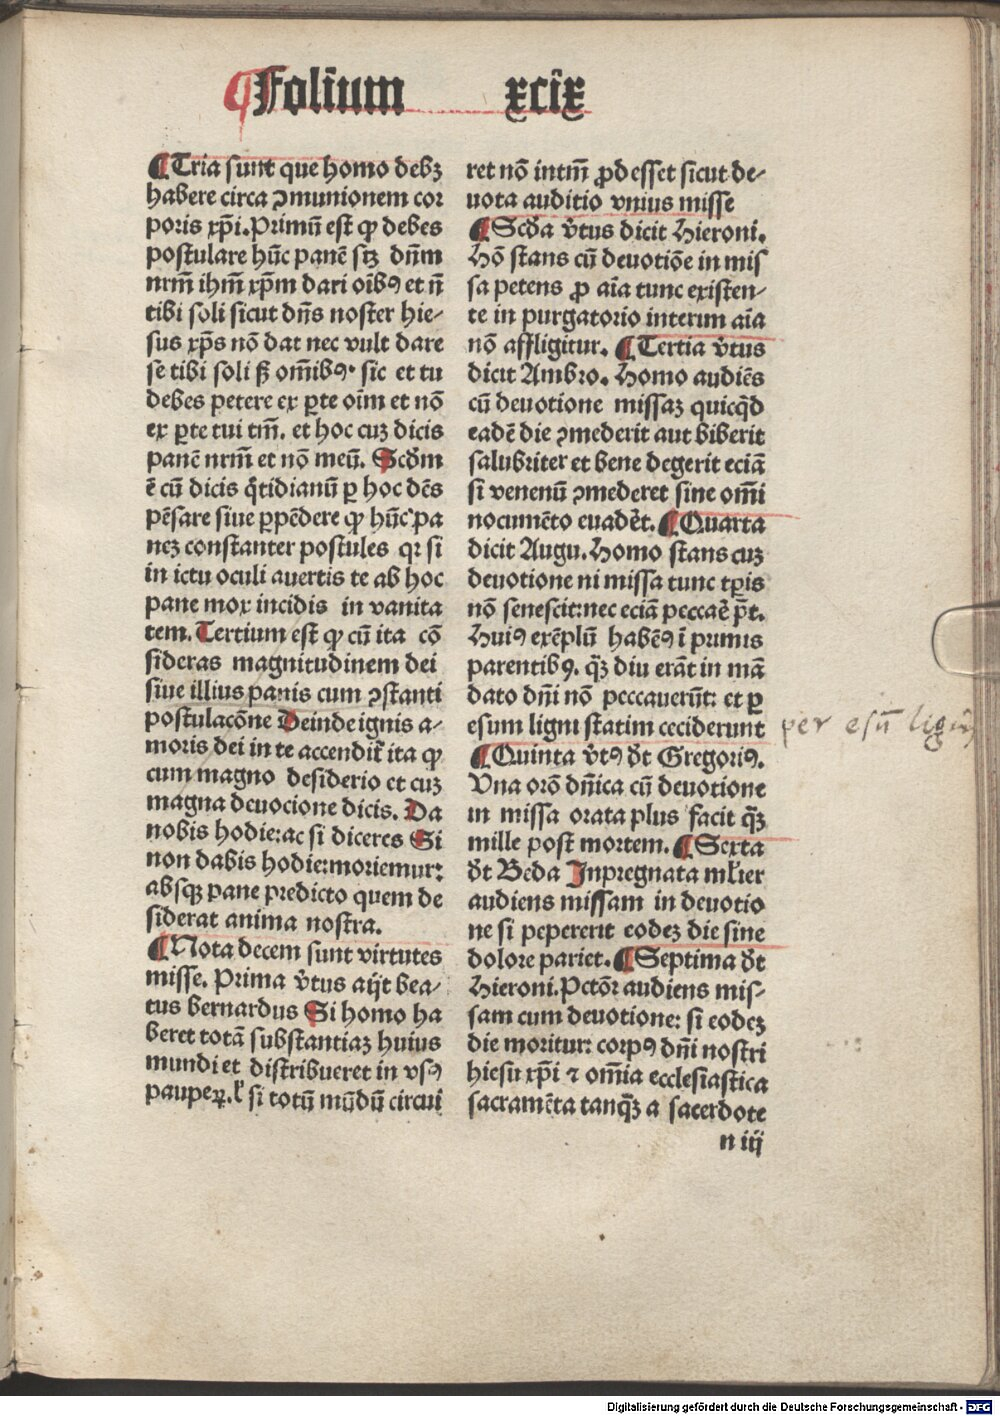 ¶Folium xcix
¶Tria sunt que homo debꝫ
habere circa ꝯmunionem cor
poris xp̄i. Primū est ꝙ debes
postulare hūc panē sꝫ dn̄m
nrm̄ ihm̄ xp̄m dari oīb⁹ et n̄
tibi soli sicut dn̄s noster hie-
sus xp̄s nō dat nec vult dare
se tibi soli sꝫ om̄ib⁹· sic et tu
debes petere ex ꝑte oīm et nō
ex ꝑte tui tm̄. et hoc cuꝫ dicis
panē nrm̄ et nō meū. Scd̄m
ē cū dicis q̄tidianū ꝑ hoc dēs
pēsare siue ꝑpēdere ꝙ hūc pa
neꝫ constanter postules qꝛ si
in ictu oculi auertis te ab hoc
pane mox incidis in vanita
tem. Tertium est ꝙ cū ita cō
sideras magnitudinem dei
siue illius panis cum ꝯstanti
postulacōne Deinde ignis a-
moris dei in te accendit̄ ita ꝙ
cum magno desiderio et cuꝫ
magna deuocione dicis. Da
nobis hodie:ac si diceres Si
non dabis hodie:moriemur:
absqꝫ pane predicto quem de
siderat anima nostra.
¶Nota decem sunt virtutes
misse. Prima v̄tus aijt bea-
tus bernardus Si homo ha
beret totā substantiaꝫ huius
mundi et distribueret in vs⁹
pauperꝝ. ł si totū mūdū circui
ret nō intm̄ ꝓdesset sicut de-
uota auditio vnius misse
¶Scd̄a v̄tus dicit Hieroni.
Hō stans cū deuotiōe in mis
sa petens ꝓ aīa tunc existen-
te in purgatorio interim aīa
nō affligitur. ¶Tertia v̄tus
dicit Ambro. Homo audiēs
cū deuotione missaꝫ quicq̄d
eadē die ꝯmederit aut biberit
salubriter et bene degerit eciā
si venenū ꝯmederet sine om̄i
nocumēto euadēt. ¶Quarta
dicit Augu. Homo stans cuꝫ
deuotione ni missa tunc tꝑis
nō senescit:nec eciā peccaē p̄t.
Hui⁹ exēplū habēꝰ ī primis
parentib⁹. qꝫ̄ diu erāt in mā
dato dn̄i nō peccauerūt: et ꝑ
esum ligni statim ceciderunt
per esū ligni
¶Quinta v̄t⁹ d̄t Gregori⁹.
Vna orō dn̄ica cū deuotione
in missa orata plus facit qꝫ̄
mille post mortem. ¶Sexta
d̄t Beda Inpregnata mł'ier
audiens missam in deuotio
ne si pepererit eodeꝫ die sine
dolore pariet. ¶Septima d̄t
Hieroni. Pctōr audiens mis-
sam cum deuotione: si eodeꝫ
die moritur: corp⁹ dn̄i nostri
hiesu xp̄i ⁊ om̄ia ecclesiastica
sacramēta tanqꝫ̄ a sacerdote
n iij
Digitalisierung gefördert durch die Deutsche Forschungsgemeinschaft - DFG